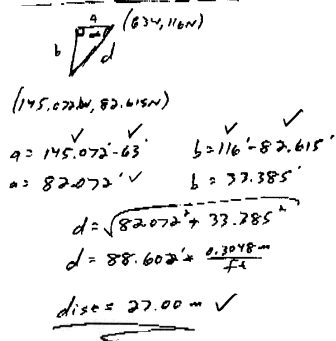 a (63W, 116N)
b d
(145.072W, 82.615N)
✓ ✓ ✓ ✓
a = 145.072' - 63' b = 116' - 82.615'
a = 82.072' ✓ b = 33.385'
d = √82.072² + 33.385²
d = 88.602' * 0.3048 m / ft
dist = 27.00 m ✓